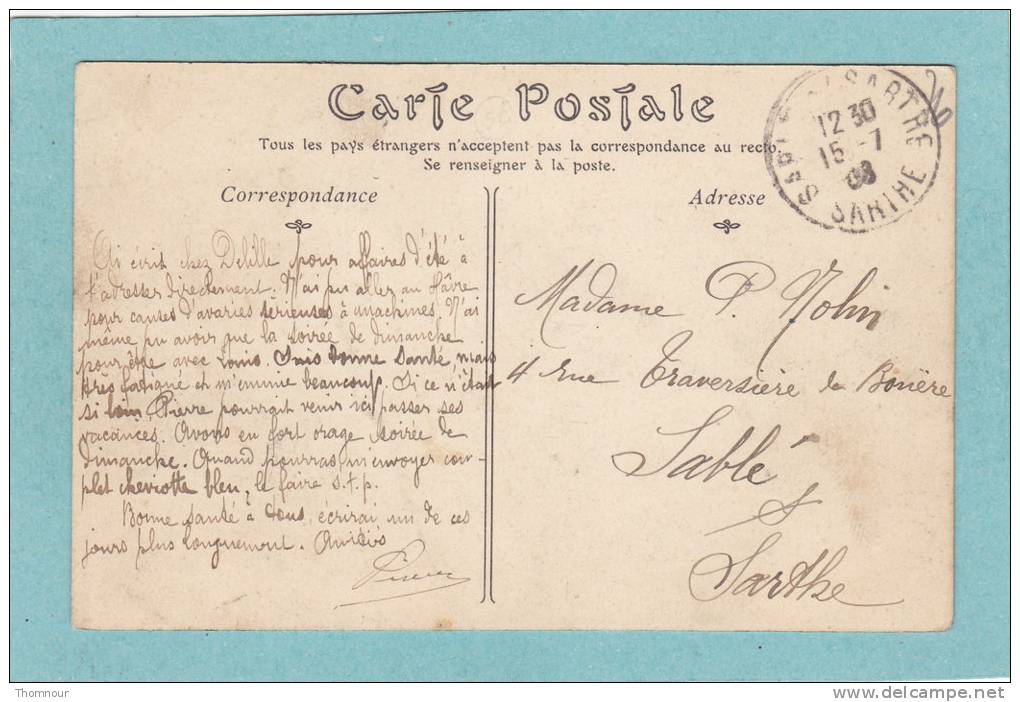 Carte Postale
Tous les pays étrangers n'acceptent pas la correspondance au recto.
Se renseigner à la poste.
Correspondance
Adresse
SARTHE
12 30
15 - 7
08
SARTHE
Ai écrit chez Delille pour affaires d'été à
t'adresser directement. N'ai pu aller au Hâvre
pour causes d'avaries sérieuses à machines. N'ai
même pu avoir que la soirée de dimanche
pour être avec Louis. Suis bonne santé, mais
très fatigué et m'ennuie beaucoup. Si ce n'était
si loin, Pierre pourrait venir ici passer ses
vacances. Avons eu fort orage soirée de
dimanche. Quand pourras m'envoyer com-
plet cheviotte bleu, le faire s.t.p.
Bonne santé à tous, écrirai un de ces
jours plus longuement. Amitiés
Madame P. Nolin
4 rue Traversière de Bouère
Sablé
s/
Sarthe
Thomnour
www.delcampe.net